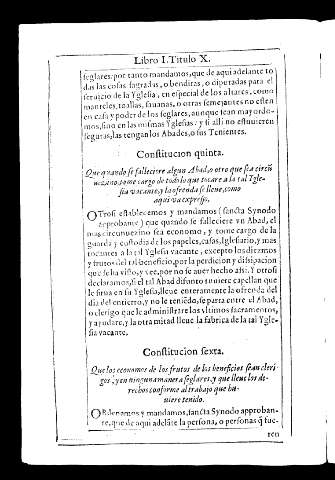 Libro I. Titulo X.
seglares: por tanto mandamos, que de aqui adelante to
das las cosas sagradas, o benditas, o diputadas para el
seruicio de la Yglesia, en especial de los altares, como
manteles, toallas, sauanas, o otras semejantes no esten
en casa y poder de los seglares, aunque sean mayordo-
mos, sino en las mismas Yglesias: y si alli no estuuieren
seguras, las tengan los Abades, o sus Tenientes.
Constitucion quinta.
Que quando se falleciere algun Abad, o otro que sea circũ
uezino, tome cargo de todo lo que tocare a la tal Ygle-
sia vacante, y la ofrenda se lleue, como
aqui va expreso.
OTrosi establecemos y mandamos (sancta Synodo
approbante) que quando se falleciere vn Abad, el
mas circunuezino sea economo, y tome cargo de la
guarda y custodia de los papeles, casas, Iglesario, y mas
tocantes a la tal Yglesia vacante, excepto los diezmos
y frutos del tal beneficio, por la perdicion y dissipacion
que se ha visto, y vee, por no se auer hecho assi. Y otrosi
declaramos, si el tal Abad difunto tuuiere capellan que
le sirua en su Yglesia, lleue enteramente la ofrenda del
dia del entierro, y no le teniẽdo, se parta entre el Abad,
o clerigo que le administrare los vltimos sacramentos,
y ayudare, y la otra mitad lleue la fabrica de la tal Ygle-
sia vacante.
Constitucion sexta.
Que los economos de los frutos de los beneficios sean cleri
gos, y en ninguna manera seglares, y que lleuen los de-
rechos conforme al trabajo que hu-
uiere tenido.
ORdenamos y mandamos, sancta Synodo approban-
te, que de aqui adelãte la persona, o personas q̃ fue-
ren